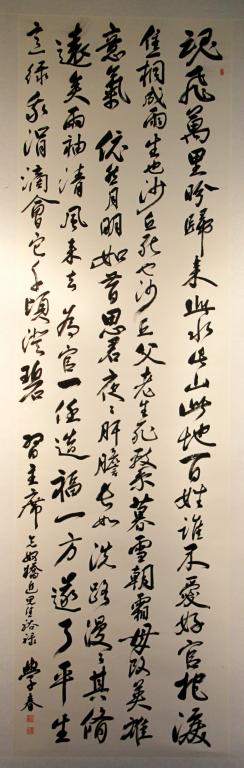 魂飛萬里盼歸來此水此山此地百姓誰不愛好官把淚
焦桐成雨生也沙丘死也沙丘父老生死繫暮雪朝霜毋改英雄
意氣 依然月明如昔思君夜々肝膽長如洗路漫々其脩
遠矣兩袖清風來去為官一任造福一方遂了平生
意綠我涓滴會它千頃澄碧 習主席念奴嬌追思焦裕祿 學春